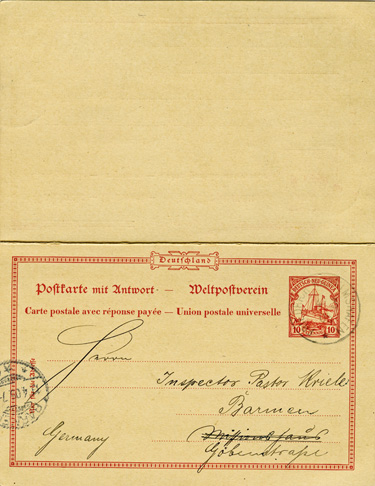 Deutschland
Postkarte mit Antwort — Weltpostverein
Carte postale avec réponse payée — Union postale universelle
DEUTSCH-NEU-GUINEA
10 10
Herrn
Inspector Pastor Kriele
Barmen
Missionshaus
Göbenstraße
Germany